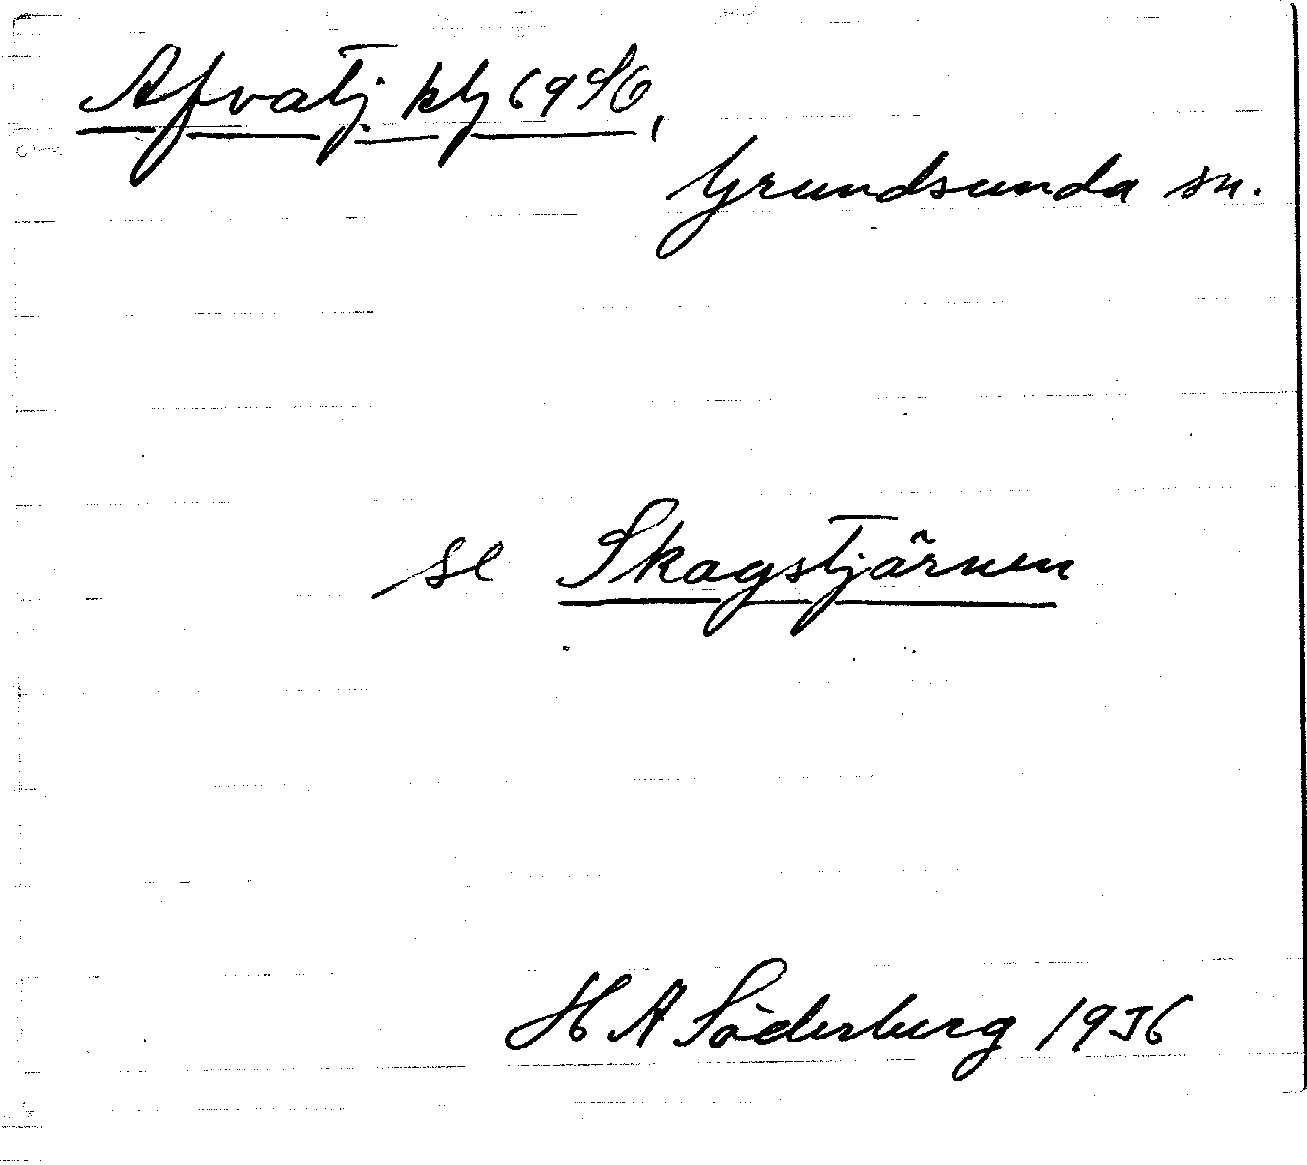 Afvatj.ktj 69 SO,
Grundsunda sn.
se Skagstjärnen
H A Söderberg 1936